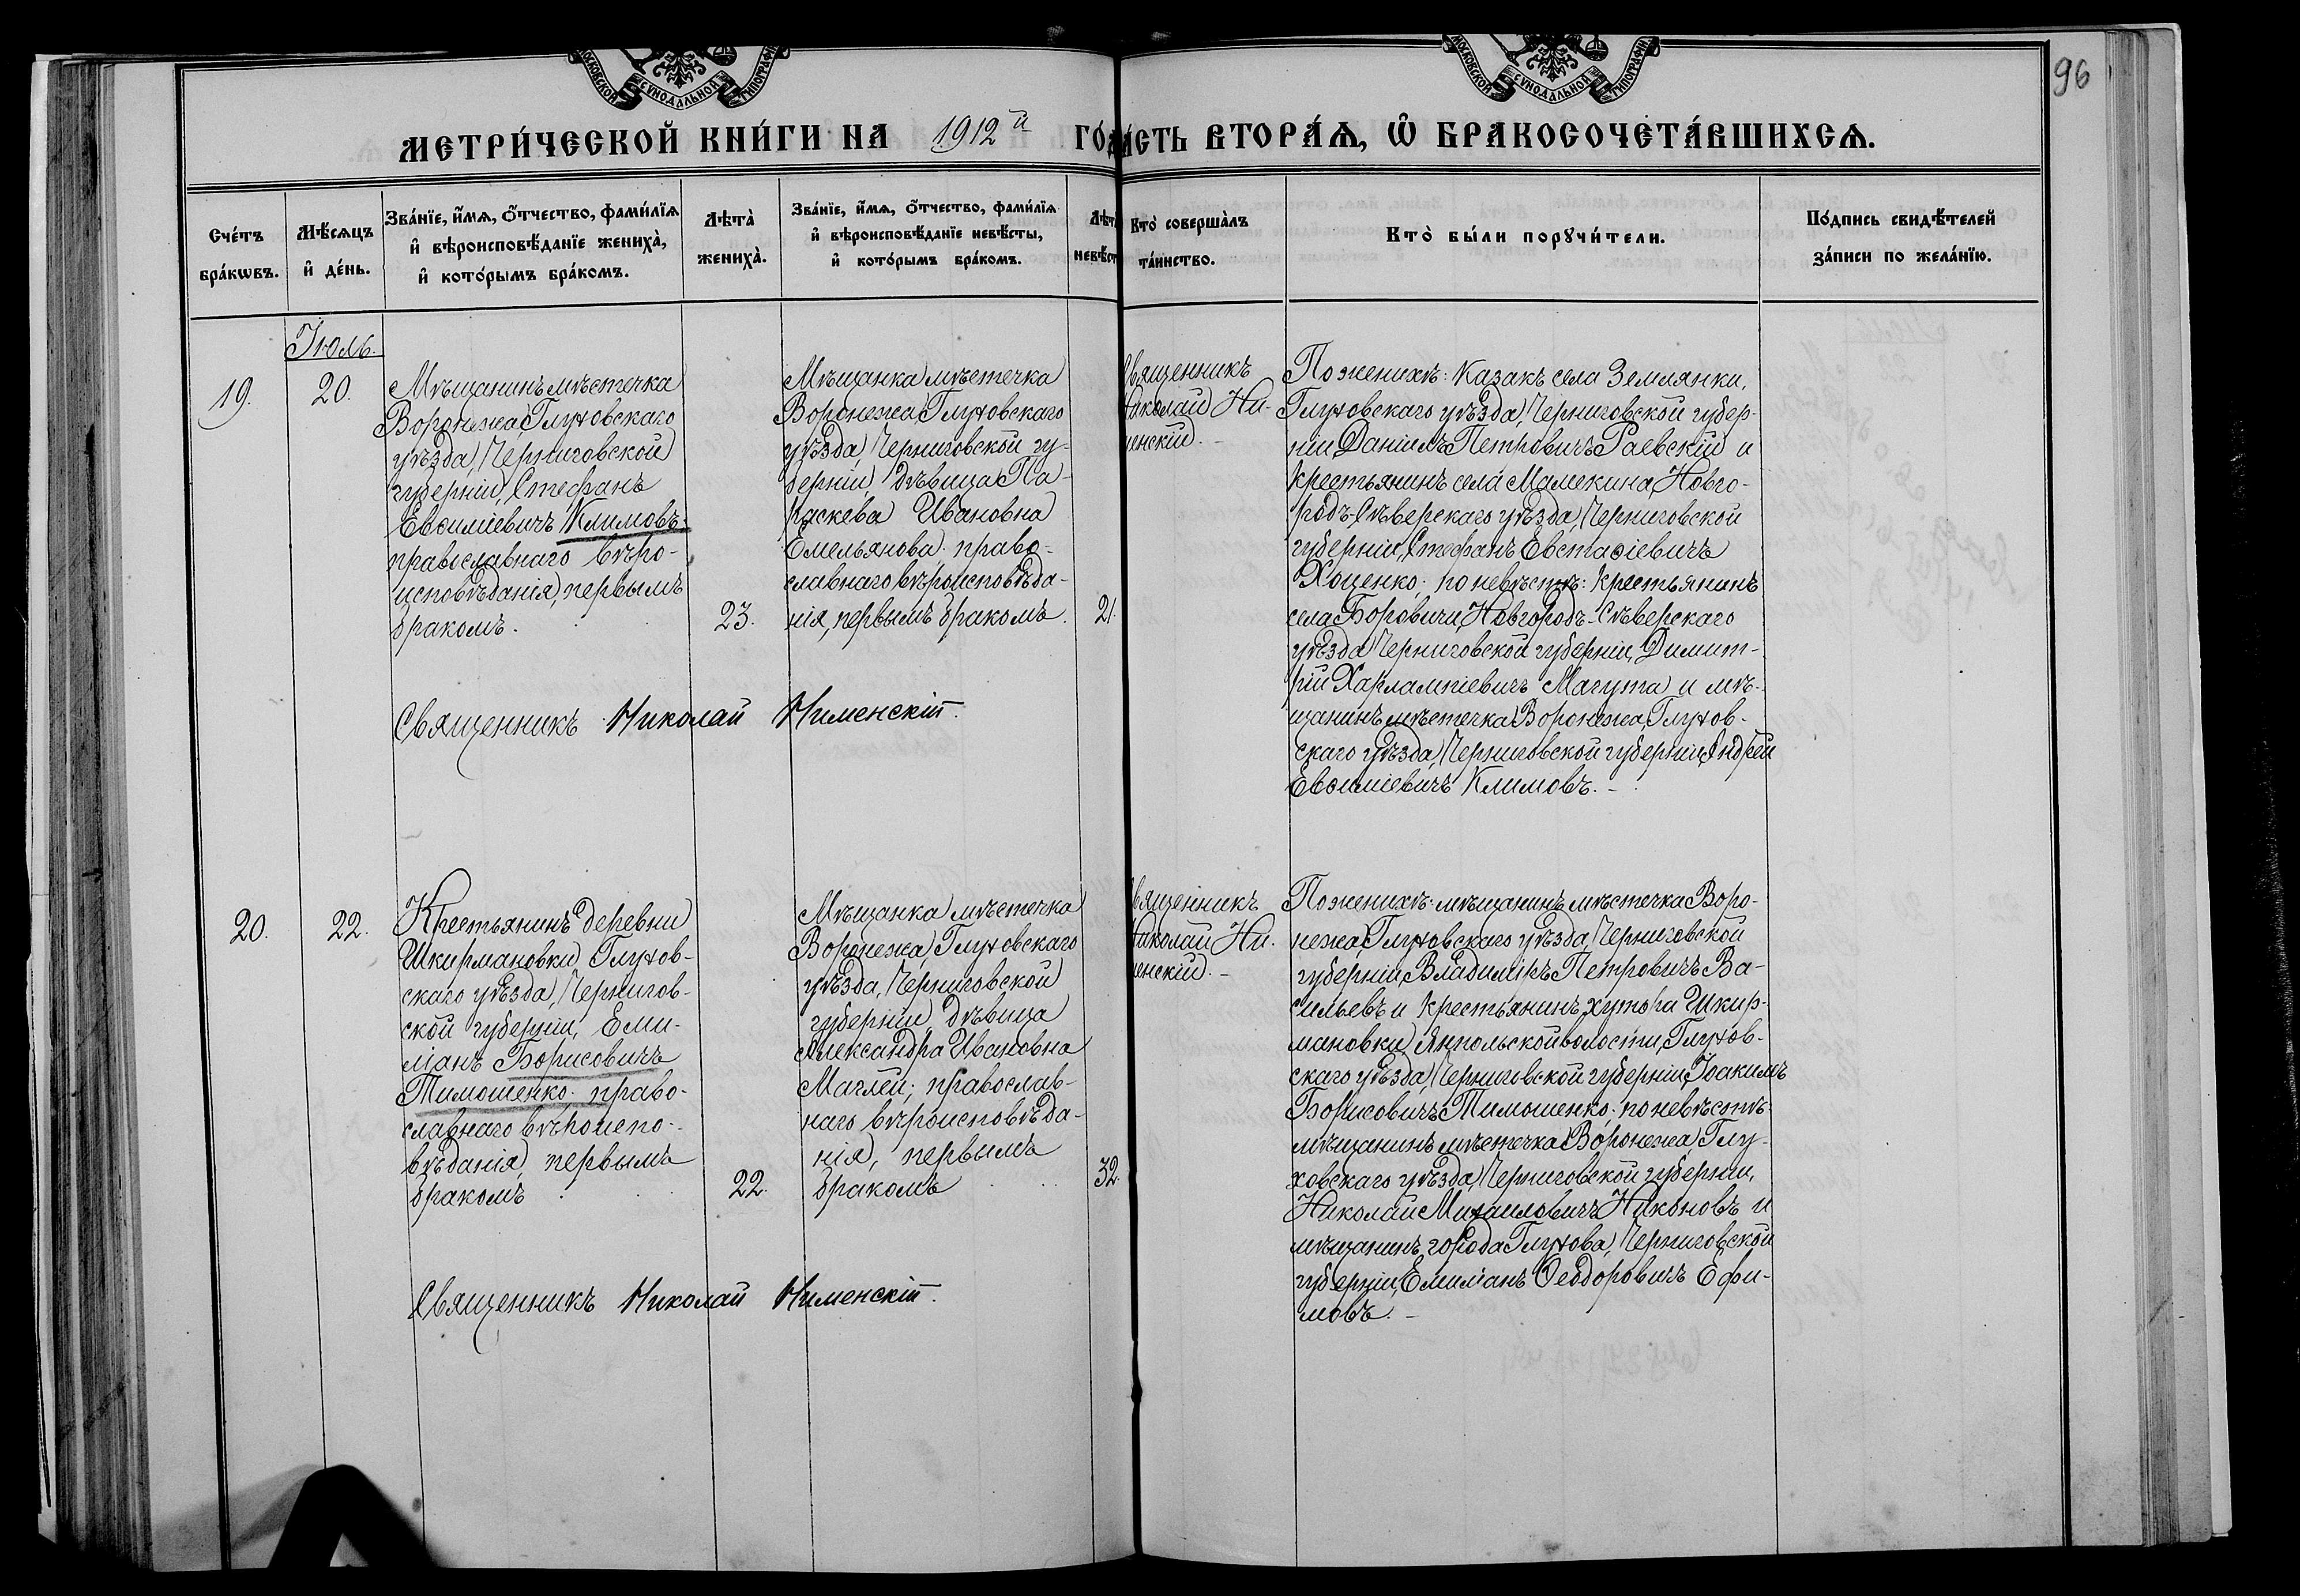 96
МОСКОВСКОЙ СУНОДАЛЬНОЙ ТИПОГРАФІИ
МОСКОВСКОЙ СУНОДАЛЬНОЙ ТИПОГРАФІИ
МЕТРИ́ЧЕСКОЙ КНИ́ГИ НА 1912й ГО́Д
А́СТЬ ВТОРА́Ѧ, Ѽ БРАКОСОЧЕТА́ВШИХСѦ.
Счéтъ
брáкѡвъ.
Мѣ́сѧцъ
и҆ дéнь.
Звáнїе, и҆́мѧ, ѻ҆́тчество, фамѝлїѧ
и҆ вѣроисповѣ́данїе женихà,
и҆ котóрымъ брáкомъ.
Лѣ́та
женихà.
Звáнїе, и҆́мѧ, ѻ҆́тчество, фамѝлїѧ
и҆ вѣроисповѣ́данїе невѣ́сты,
и҆ котóрымъ брáкомъ.
Лѣт
невѣ́ст
Ктò совершáлъ
тáинство.
Ктò бы́ли порꙋчи́тели.
Пóдпись свидѣ́телей
зáписи по желáнїю.
Іюль.
19.
20.
Мѣщанинъ мѣстечка
Воронежа, Глуховскаго
уѣзда, Черниговской
губерніи, Стефанъ
Евѳиміевичъ Климовъ.
православнаго вѣро-
исповѣданія, первымъ
бракомъ.
23.
Мѣщанка мѣстечка
Воронежа, Глуховскаго
уѣзда, Черниговской гу-
берніи, дѣвица Па-
раскева Ивановна
Емельянова. право-
славнаго вѣроисповѣда-
нія, первымъ бракомъ.
21.
вященникъ
Николай Ни-
менскій. -
По женихѣ: Казакъ села Землянки,
Глуховскаго уѣзда, Черниговской губер-
ніи Даніилъ Петровичъ Раевскій и
крестьянинъ села Мамекина, Новго-
родъ-Сѣверскаго уѣзда, Черниговской
губерніи, Стефанъ Евстаѳіевичъ
Хоценко; по невѣстѣ: крестьянинъ
села Боровичи, Новгородъ-Сѣверскаго
уѣзда Черниговской губерніи, Димит-
рій Харлампіевичъ Магута и мѣ-
щанинъ мѣстечка Воронежа, Глухов-
скаго уѣзда, Черниговской губерніи, Андрей
Евѳиміевичъ Климовъ. -
Священникъ Николай Нименскій.
20.
22.
Крестьянинъ деревни
Шкирмановки, Глухов-
скаго уѣзда, Чернигов-
ской губерніи, Еми-
ліанъ Борисовичъ
Тимошенко. право-
славнаго вѣроиспо-
вѣданія, первымъ
бракомъ
22.
Мѣщанка мѣстечка
Воронежа, Глуховскаго
уѣзда, Черниговской
губерніи, дѣвица
Александра Ивановна
Маглей; православ-
наго вѣроисповѣда-
нія, первымъ
бракомъ
32.
вященникъ
Николай Ни.
менскій. -
По женихѣ: мѣщанинъ мѣстечка Воро-
нежа, Глуховскаго уѣзда, Черниговской
губерніи, Владиміръ Петровичъ Ва-
сильевъ и крестьянинъ хутора Шкир-
мановки, Ямпольской волости, Глухов-
скаго уѣзда, Черниговской губерніи, Іоакимъ
Борисовичъ Тимошенко: по невѣстѣ:
мѣщанинъ мѣстечка Воронежа, Глу-
ховскаго уѣзда, Черниговской губерніи,
Николай Михаиловичъ Никоновъ и
мѣщанинъ города Глухова, Черниговской
губерніи, Емиліанъ Ѳеодоровичъ Ефи-
мовъ. -
Священникъ Николай Нименскій.